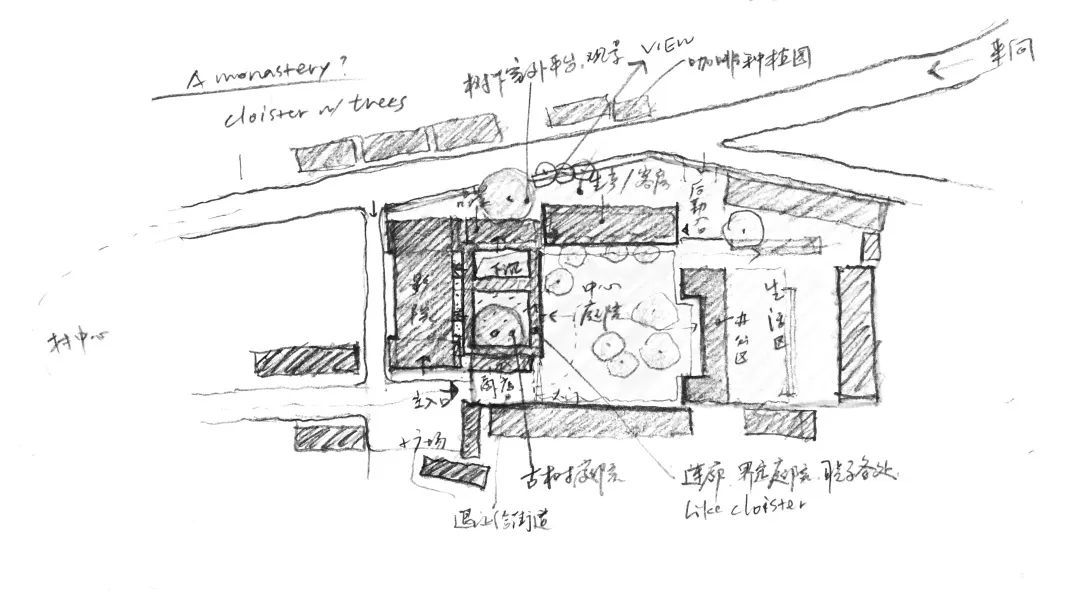 A monastery?
cloister w/ trees
树下室外平台,观景
VIEW
咖啡种植园
车间
生豆/客房
后勤入口
影院
下沉
中心庭院
办公区
生活区
村中心
主入口
大门
小广场
古树庭院
连廊,界定庭院,联系各处
like cloister
退让给街道